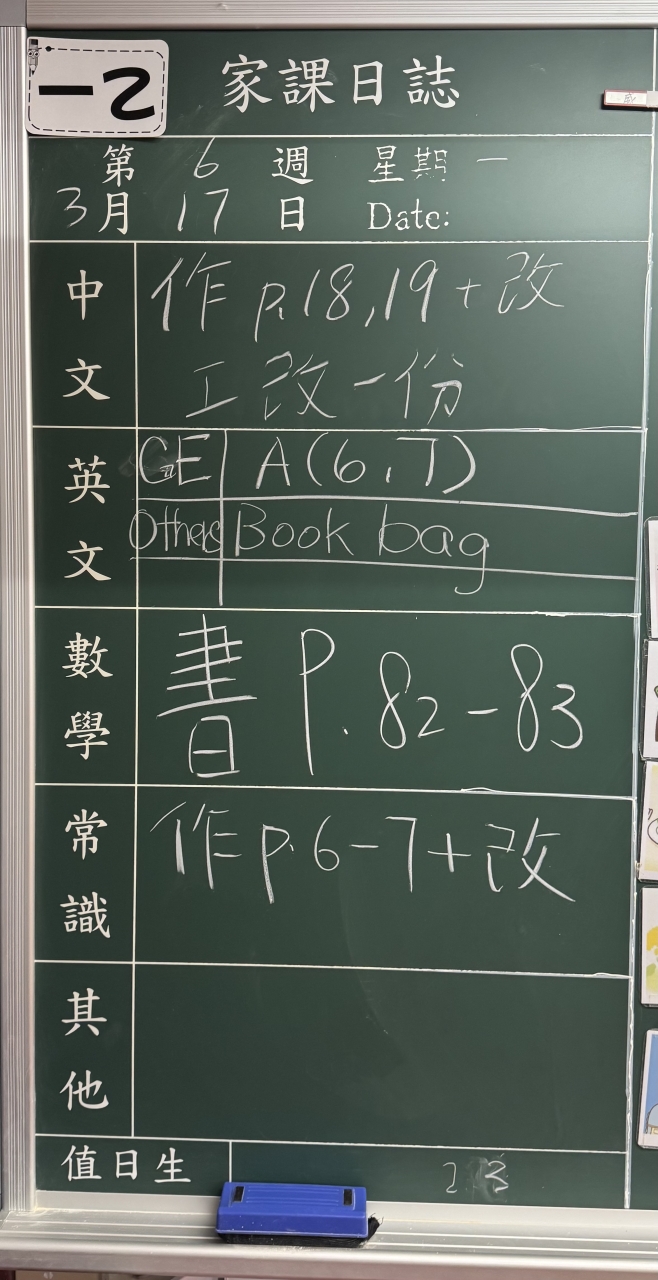 一乙
家課日誌
第 6 週 星期 一
3月 17 日 Date:
中文
作 p.18,19 + 改
工 改 一份
英文
GE A(6,7)
Others Book bag
數學
書 P. 82 - 83
常識
作 p.6 - 7 + 改
其他
值日生